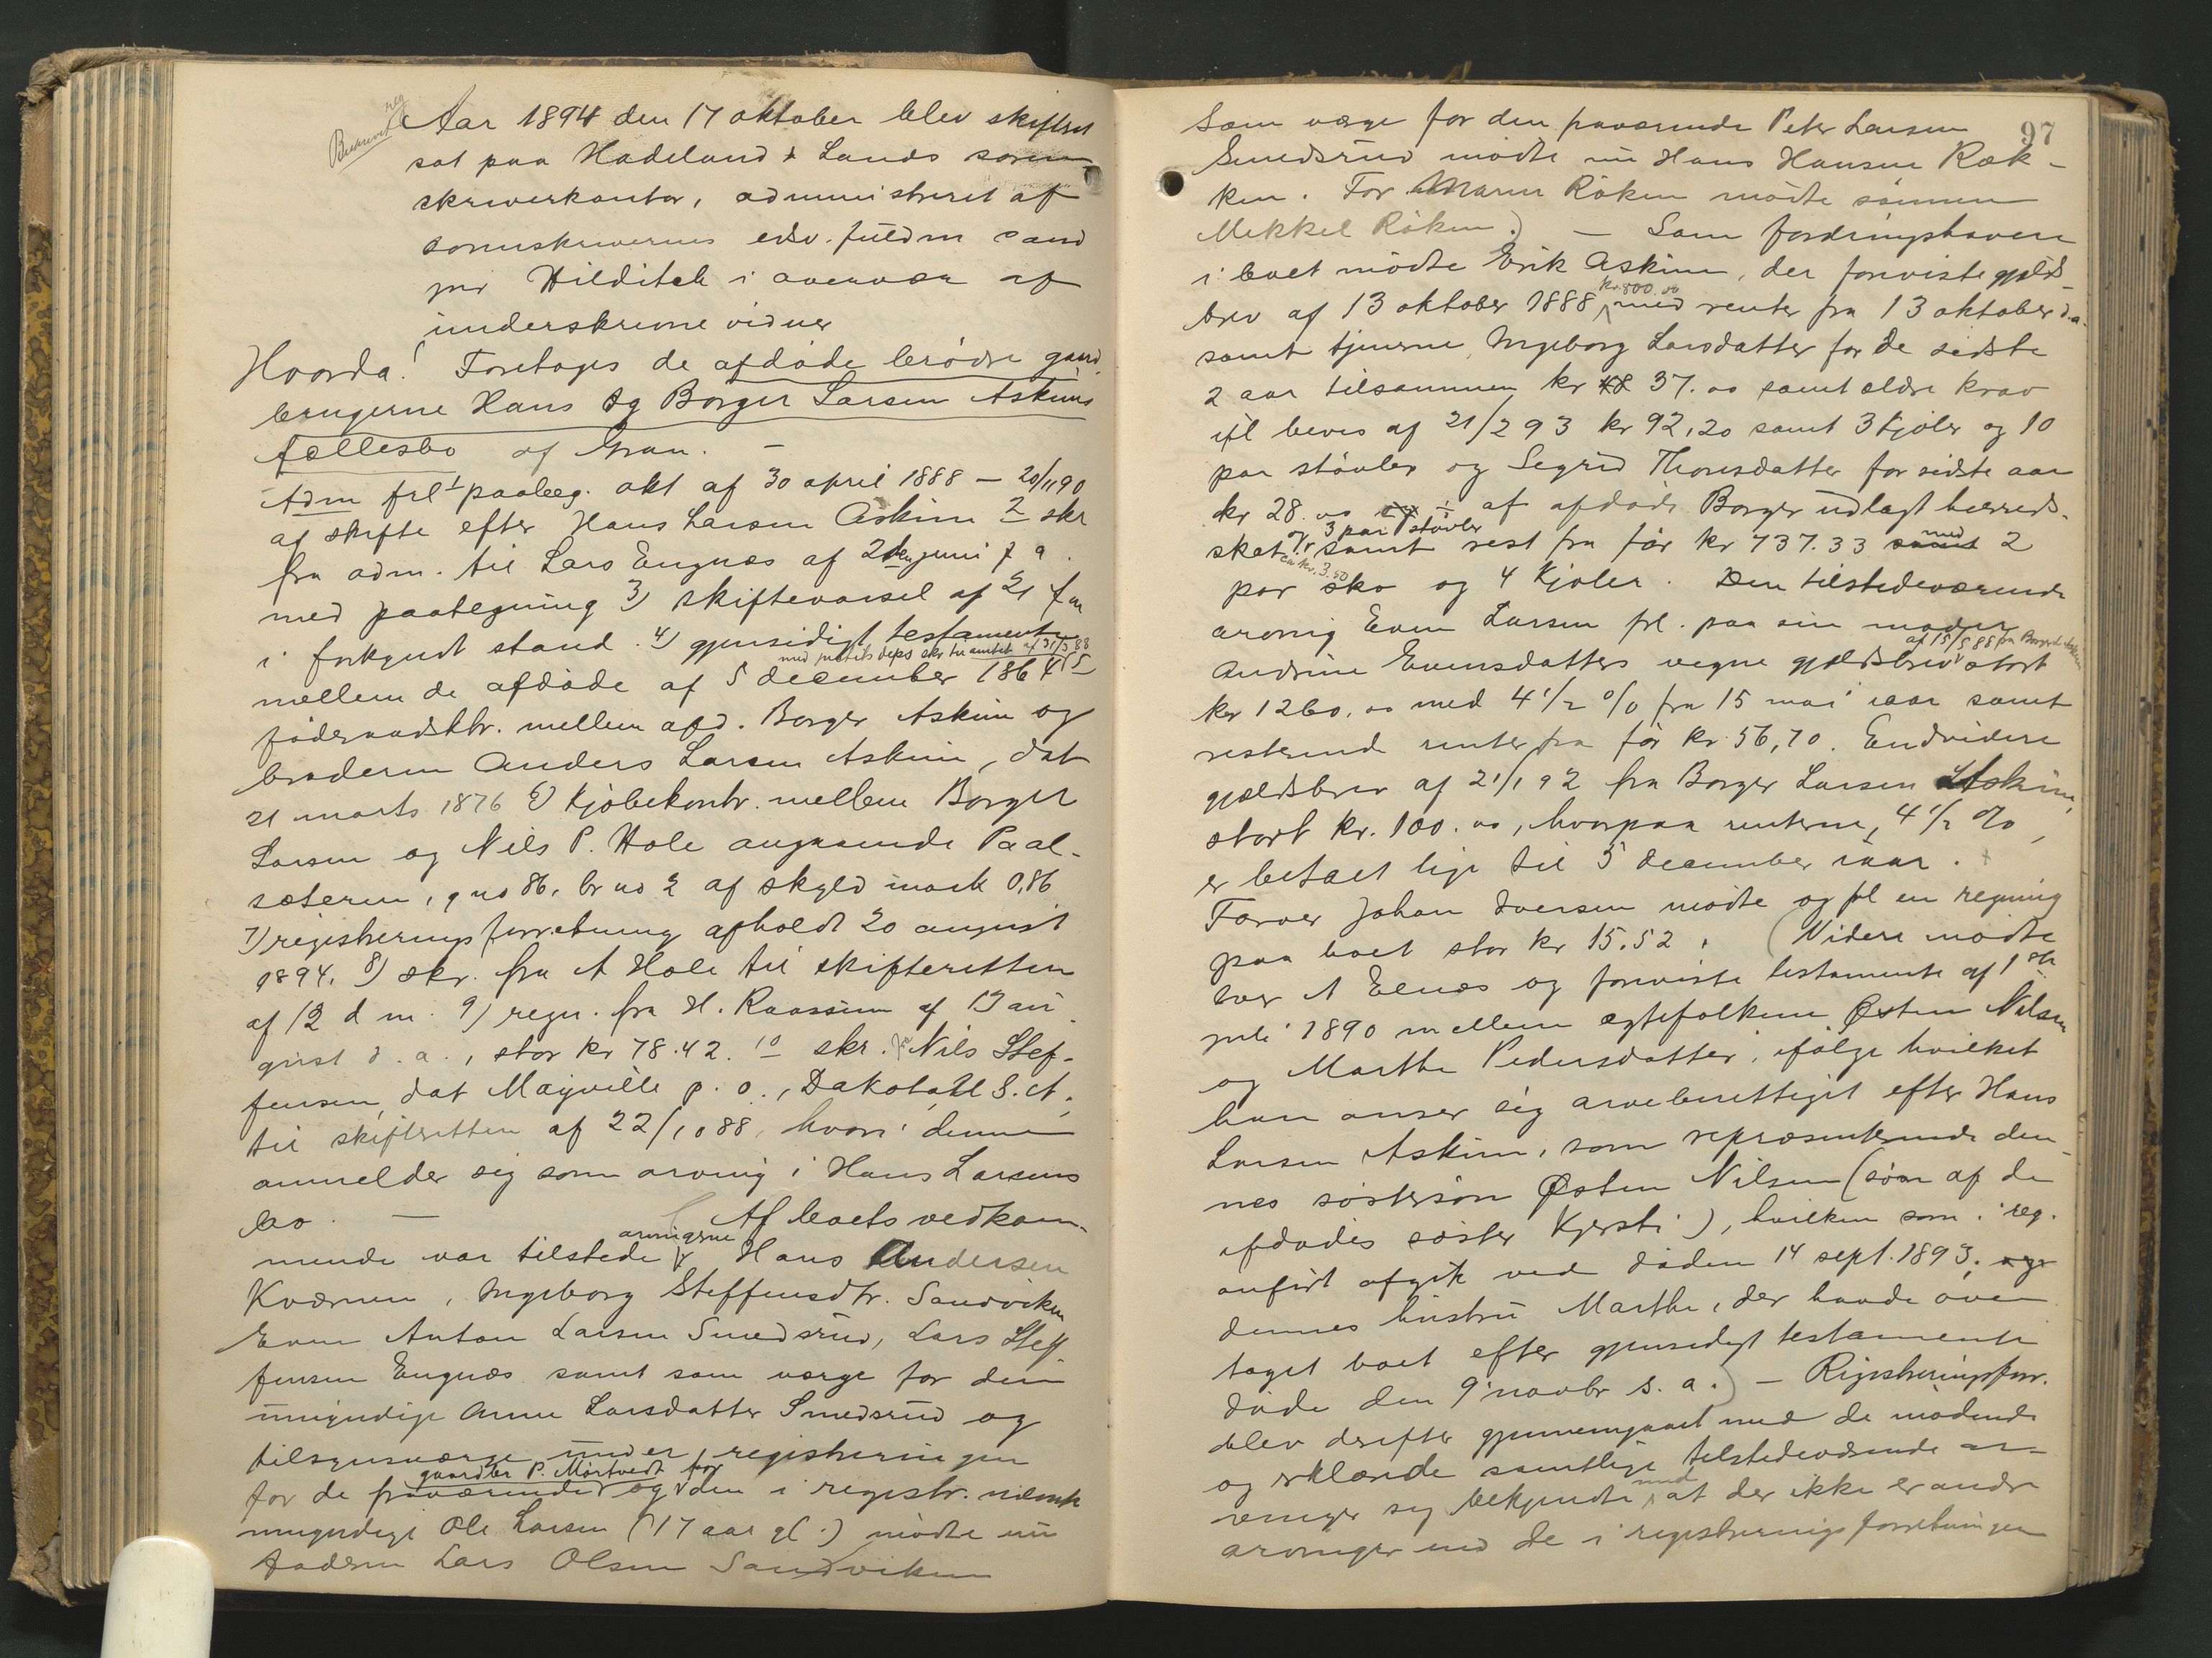 Aar 1894 den 17 oktober blev skifteret
sat paa Hadeland & Lands soren
skriverkontor, administreret af
sorenskriverens edsv. fuldm cand
jur Hilditch i overvær af
underskrevne vidner
Hvorda! Foretages de afdøde brødre gaard
brugerne Hans og Borger Larsen Askims
fællesbo af Gran. —
Adm frl 1 paabeg. akt af 30 april 1888 — 20/11 90
af skifte efter Hans Larsen Askim 2 skr
fra adm. til Lars Engnæs af 2den juni f a.
med paategning 3) skiftevarsel af 21 f m
i forkyndt stand. 4) gjensidigt testamente
med justits deps skr til amtet af 31/3 88
mellem de afdøde af 5 december 1864 5
føderaadsktr. mellem afd. Borger Askim og
broderen Anders Larsen Askim, dat
21 marts 1876 6) Kjøbekontr. mellem Borger
Larsen og Nils P. Hole angaaende Paal-
sæteren, gno 86, br no 2 af skyld mark 0,86
7) registreringsforretning afholdt 20 august
1894. 8) skr. fra A Hole til skifteretten
af 12 d m. 9) regn. fra H. Raassum af 17 au
gust d. a., stor kr 78.42. 10 skr. fra Nils Stef-
fensen, dat Mayville p. o., Dakota U. S. A.
til skifteretten af 22/10 88, hvori denne
anmelder sig som arving i Hans Larsens
bo. — Af boets vedkom-
mende var tilstede arvingerne Hans Andersen
Kværnen, Ingeborg Steffensdtr. Sandviken
Even Anton Larsen Smedsrud, Lars Stef
fensen Engnæs samt som værge for den
umyndige Anne Larsdatter Smedsrud og
tilsynsværge under registreringen
for de fraværende gaardbr P. Mörtvedt og for den i registr. nævnte
umyndige Ole Larsen (17 aar gl.) mødte nu
faderen Lars Olsen Sandviken
97
Som værge for den fraværende Peter Larsen
Smedsrud mødte nu Hans Hansen Ræk-
ken. For Maren Røken mødte sønnen
Mikkel Røken.) — Som fordringshavere
i boet mødte Erik Askim, der foreviste gjælds
brev af 13 oktober 1888 kr. 800.00 med renter fra 13 oktober d.a.
samt tjenerne Ingeborg Larsdatter for de sidste
2 aar tilsammen kr 37.00 samt ældre krav
ifl bevis af 21/2 93 kr 92,20 samt 3 kjoler og 10
par støvler og Sigrid Thorsdatter for sidste aar
kr 28.00 af afdøde Borger udlagt herreds-
skat ca kr. 3.50 og 3 par støvler samt rest fra før kr 737.33 samt med 2
par sko og 4 kjoler. Den tilstedeværende
arving Even Larsen frl. paa sin moder
Andrine Evensdatters vegne gjældsbrev af 15/5 88 fra Borger Askim stort
kr 1260.00 med 4 1/2 % fra 15 mai iaar samt
resterende renter fra før kr. 56,70. Endvidere
gjældsbrev af 21/1 92 fra Borger Larsen Askim,
stort kr. 100.00, hvorpaa renterne, 4 1/2 %,
er betalt lige til 5 december iaar.
Farver Johan Iversen mødte og frl en regning
paa boet stor kr 15.52. (Videre mødte
Iver A Elnæs og foreviste testamente af 1ste
juli 1890 mellem ægtefolkene Østen Nilsen
og Marthe Pedersdatter, ifølge hvilket
han anser sig arveberettiget efter Hans
Larsen Askim, som repræsenterende den-
nes søstersøn Østen Nilsen (søn af de
afdødes søster Kjersti), hvilken som i reg.
anført afgik ved døden 14 sept. 1893. og
dennes hustru Marthe, der havde over
taget boet efter gjensidigt testamente
døde den 9 novbr s. a.) — Registreringsforr.
blev derefter gjennemgaaet med de mødende
og erklærede samtlige tilstedeværende ar-
vinger sig bekjendte med at der ikke er andre
arvinger end de i registreringsforretningen